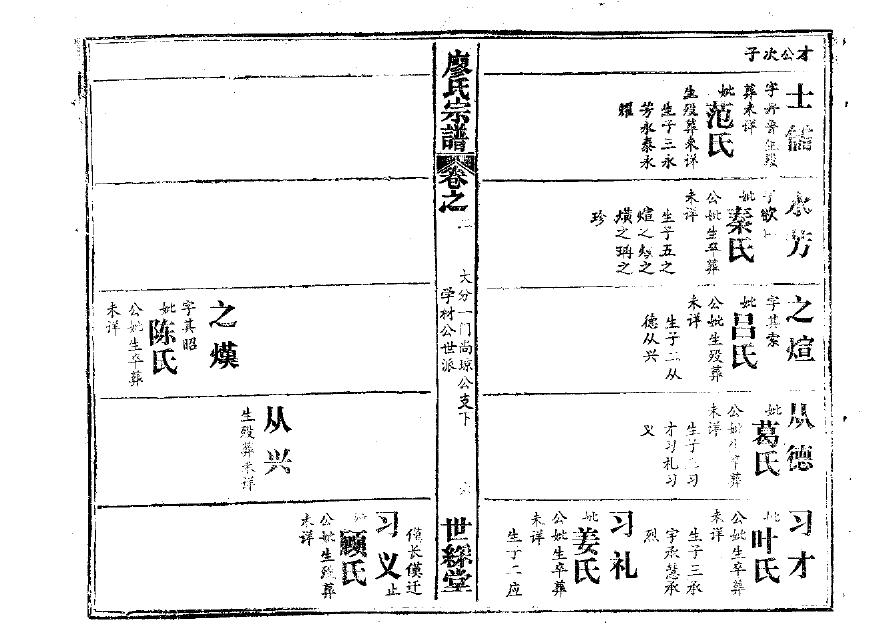 才公次子
士儒
字舜骨生殁
葬未详
妣
范氏
生殁葬未详
生子三永
芳永泰永
耀
永芳
妣
秦氏
公妣生卒葬
未详
生子五之
煊之
之
珍
之煊
字其索
妣
吕氏
公妣生殁葬
未详
生子二从
德从兴
从德
妣
葛氏
公妣生卒葬
未详
生子三习
才习礼习
义
习才
妣
叶氏
公妣生卒葬
未详
生子三承
宇承慧承
烈
习礼
妣
姜氏
公妣生卒葬
未详
生子二应
廖氏宗譜
卷之
二
大分一门尚琼公支下
学材公世派
六
世綵堂
之熯
字其昭
妣
陈氏
公妣生卒葬
未详
从兴
生殁葬未详
僙长僙迁
习义止
妣
顾氏
公妣生殁葬
未详